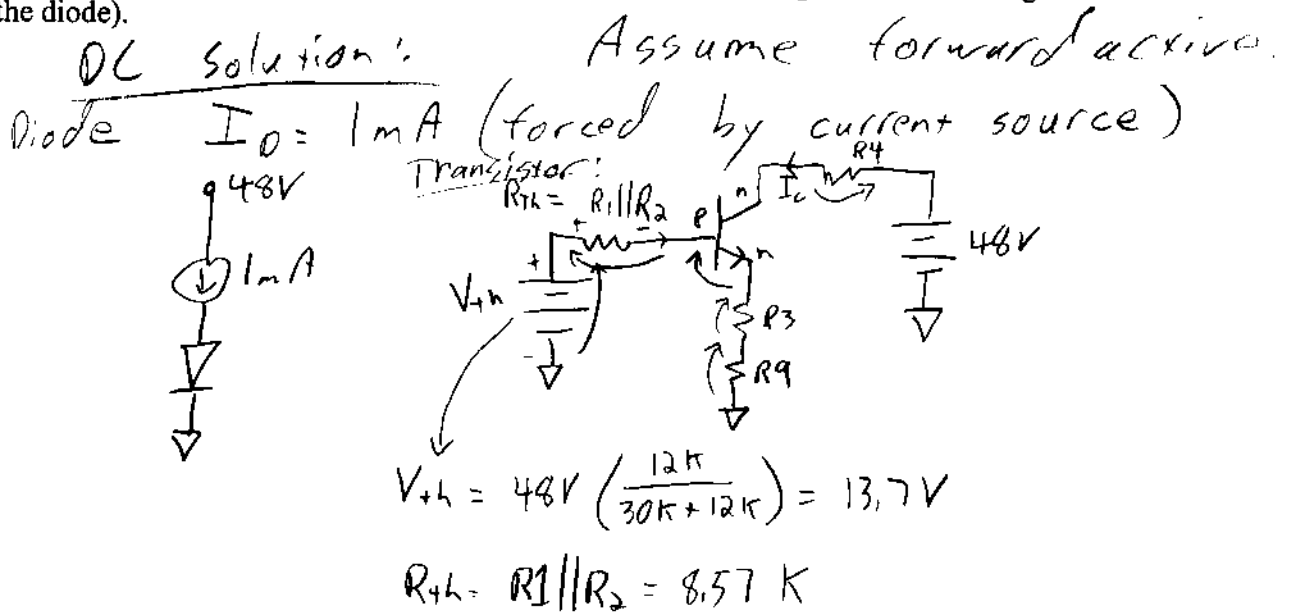 the diode).
DC Solution:
Assume forward active.
Diode I_D = 1mA (forced by current source)
Transistor:
48V
1mA
R_Th = R_1||R_2
+
-
p
n
n
I_c
R4
48V
+
V_th
-
R3
R9
V_th = 48V (12K / (30K + 12K)) = 13.7V
R_th = R1||R_2 = 8.57 K